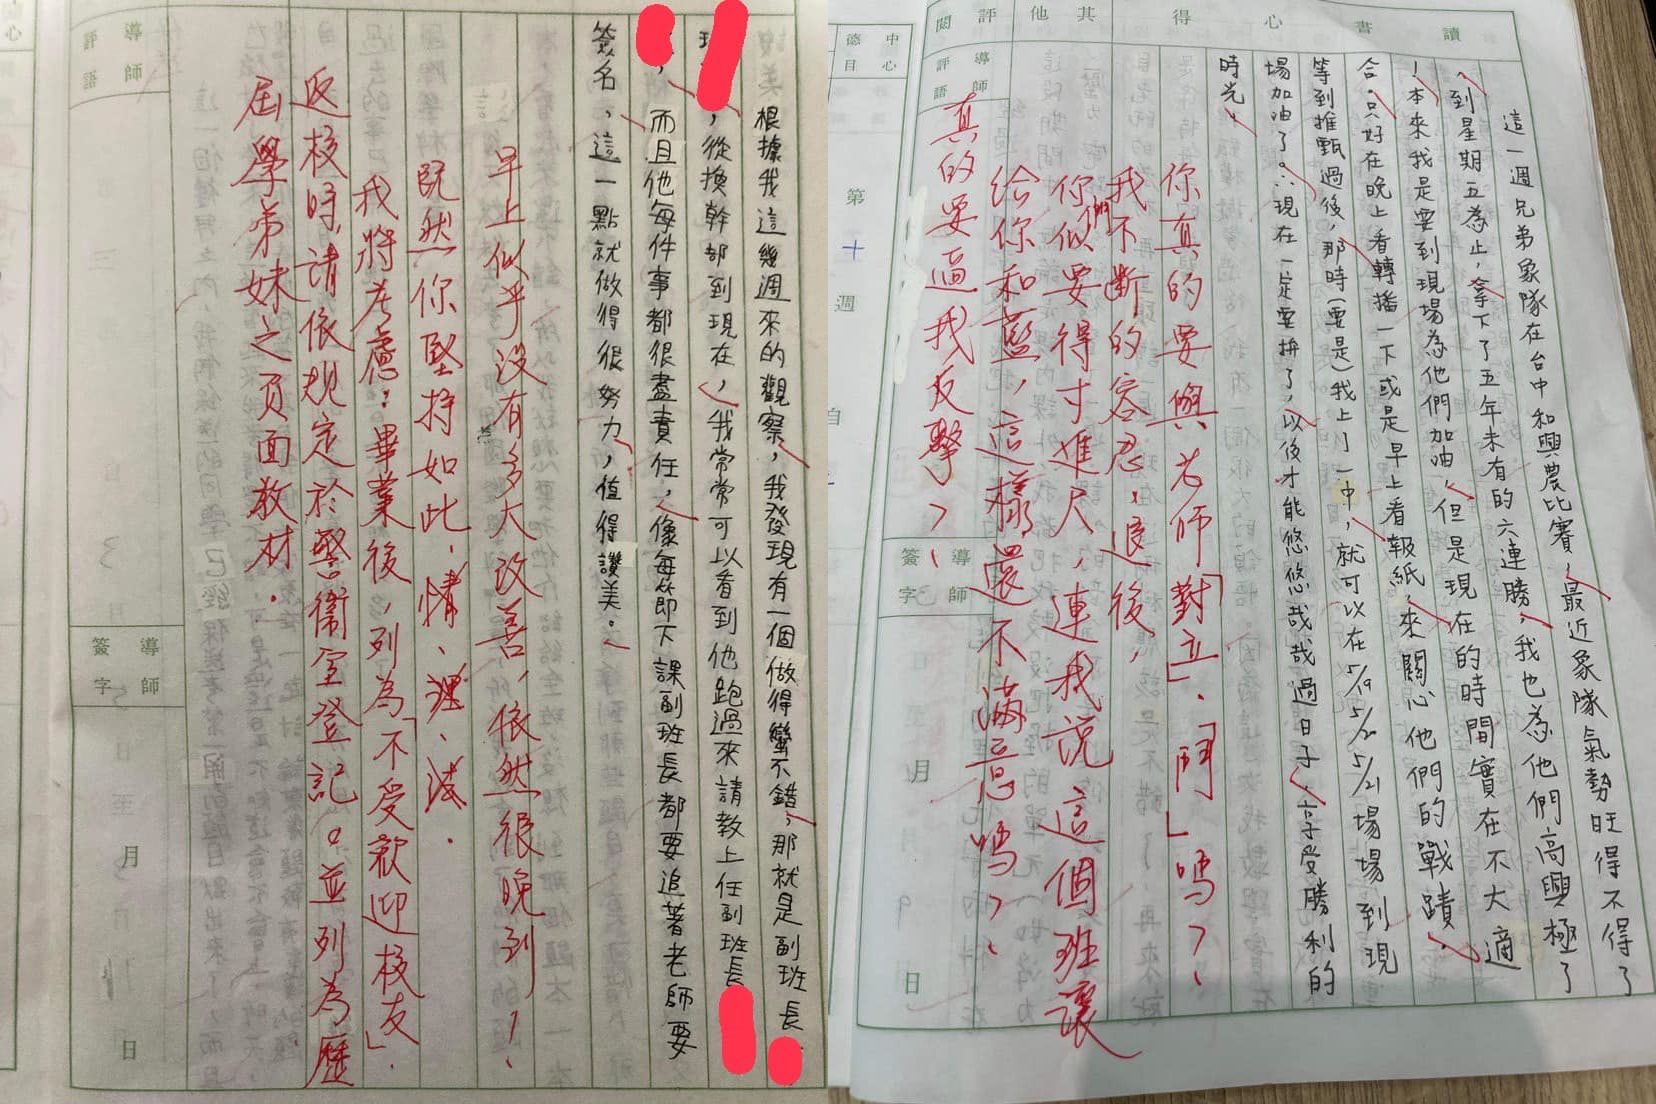 導師
評語
根據我這幾週來的觀察，我發現有一個做得蠻不錯，那就是副班長
，從換幹部到現在，我常常可以看到他跑過來請教上任副班長
，而且他每件事都很盡責任，像每節下課副班長都要追著老師要
簽名，這一點就做得很努力，值得讚美。
早上似乎沒有多大改善，依然很晚到！
既然你堅持如此，情、理、法．
我將考慮：畢業後，列為「不受歡迎校友」．
返校時，請依規定於警衛室登記。並列為歷
屆學弟妹之負面教材．
導師
簽字
月
日
讀書心得
其他
評閱
中心
德目
第十週
這一週兄弟象隊在台中和興農比賽，最近象隊氣勢旺得不得了
，到星期五為止，拿下了五年未有的六連勝，我也為他們高興極了
！本來我是要到現場為他們加油，但是現在的時間實在不大適
合。只好在晚上看轉播一下或是早上看報紙，來關心他們的戰蹟，
等到推甄過後，那時（要是）我上了一中，就可以在5/19 5/20 5/21場場到現
場加油了。∴現在一定要拚了，以後才能悠悠哉哉過日子，享受勝利的
時光，
你真的要與老師「對立」、「鬥」嗎？！
我不斷的容忍，退後，
你們似要得寸進尺，連我說這個班讓
給你和藍，這樣還不滿意嗎？！
真的要逼我反擊？！
導師
評語
導師
簽字
月
日